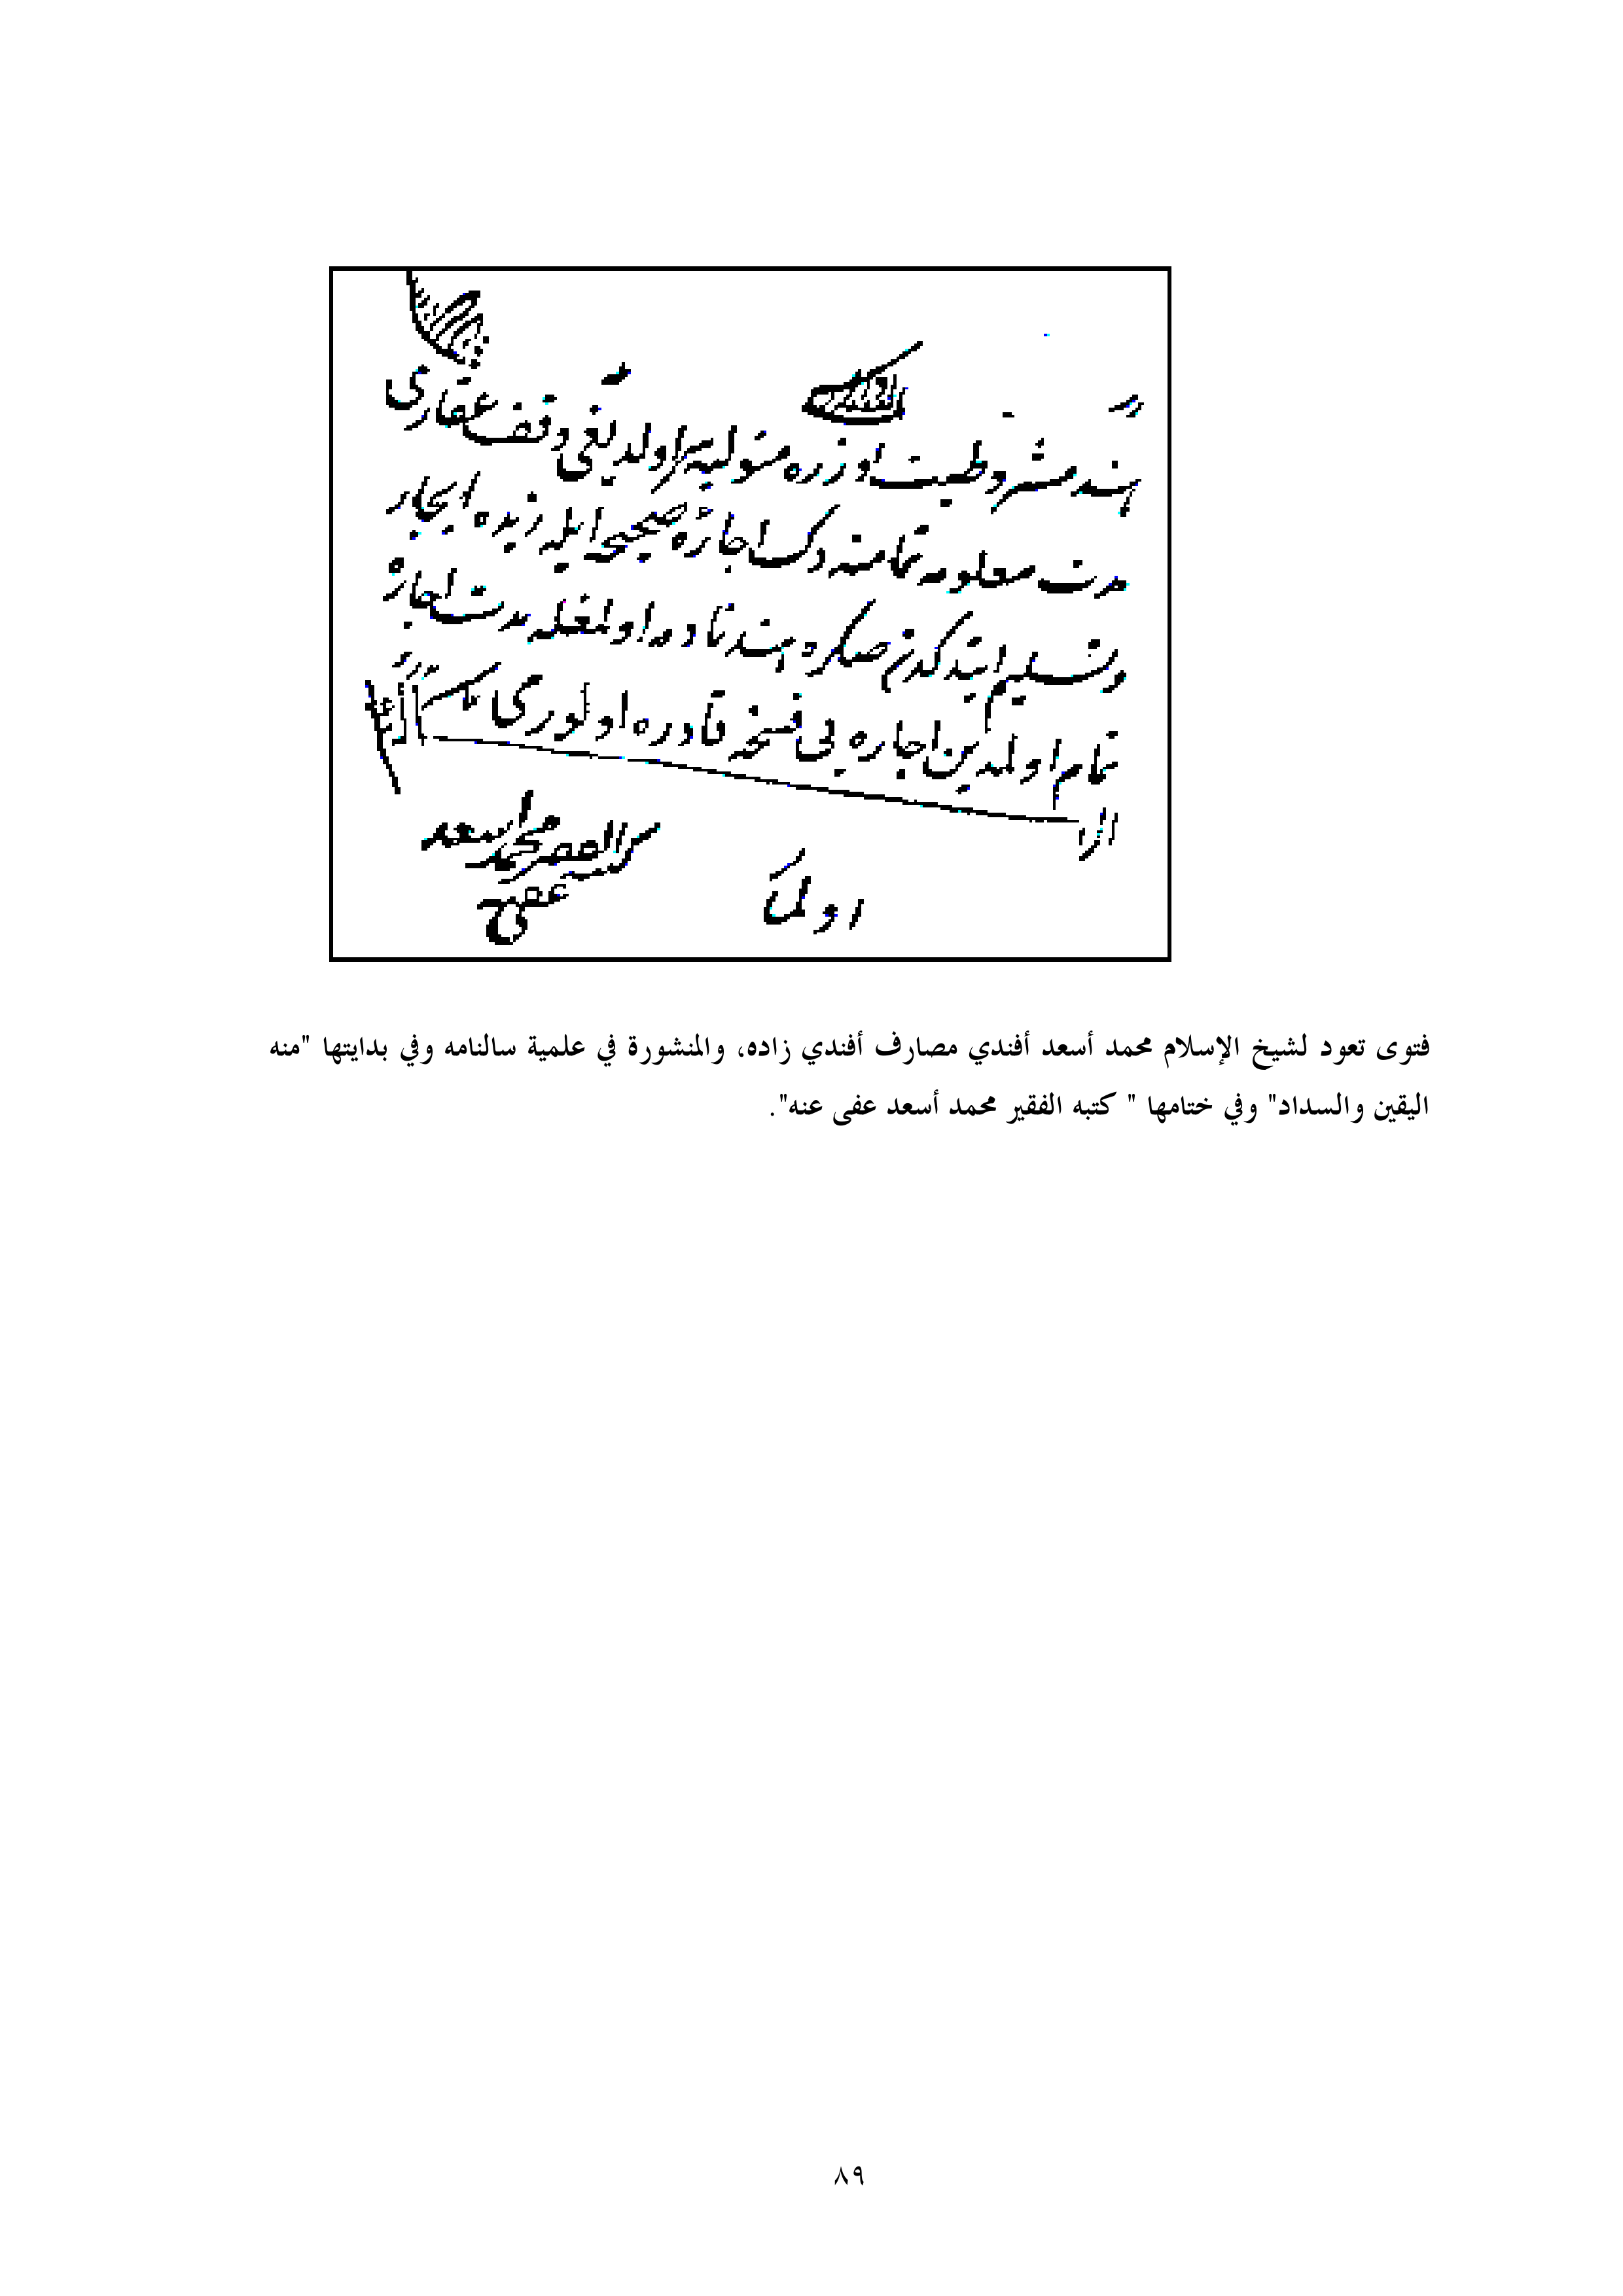 هند مشروطيت اوزره متوليه سى اولديغى وقف عقارى
مدت معلومه تمامنه دك اجارۀ صحيحه ايله زيده ايجار
وتسليم ايتدكدن صكره هند نادمه اولمغله مدت اجاره
تمام اولمدين اجاره يى فسخه قادره اولورمى
الجواب
اولماز
كتبه الفقير محمد اسعد
عفى عنه
فتوى تعود لشيخ الإسلام محمد أسعد أفندي مصارف أفندي زاده، والمنشورة في علمية سالنامه وفي بدايتها "منه
اليقين والسداد" وفي ختامها " كتبه الفقير محمد أسعد عفى عنه".
٨٩